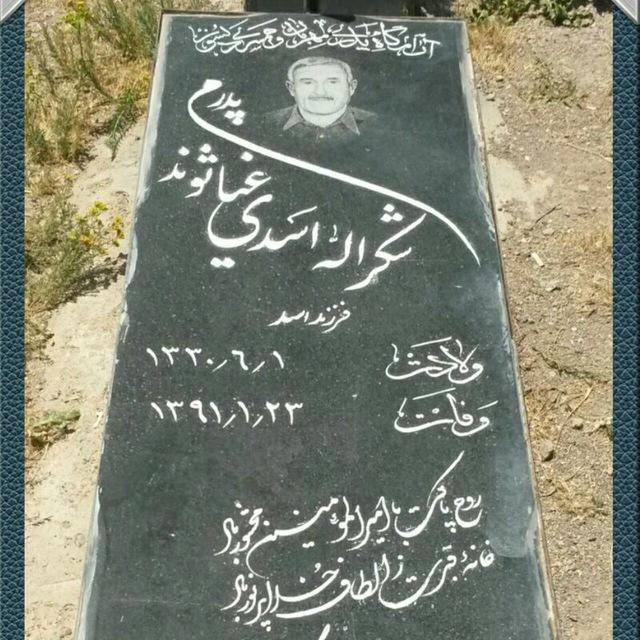 آرامگاه پدری مهربان و همسری دلسوز
پدرم
شکراله اسدی غیاثوند
فرزند اسد
ولادت ۱۳۳۰/۶/۱
وفات ۱۳۹۱/۱/۲۳
روح پاکت با امیرالمومنین محشور باد
خانه قبرت ز الطاف خدا پرنور باد